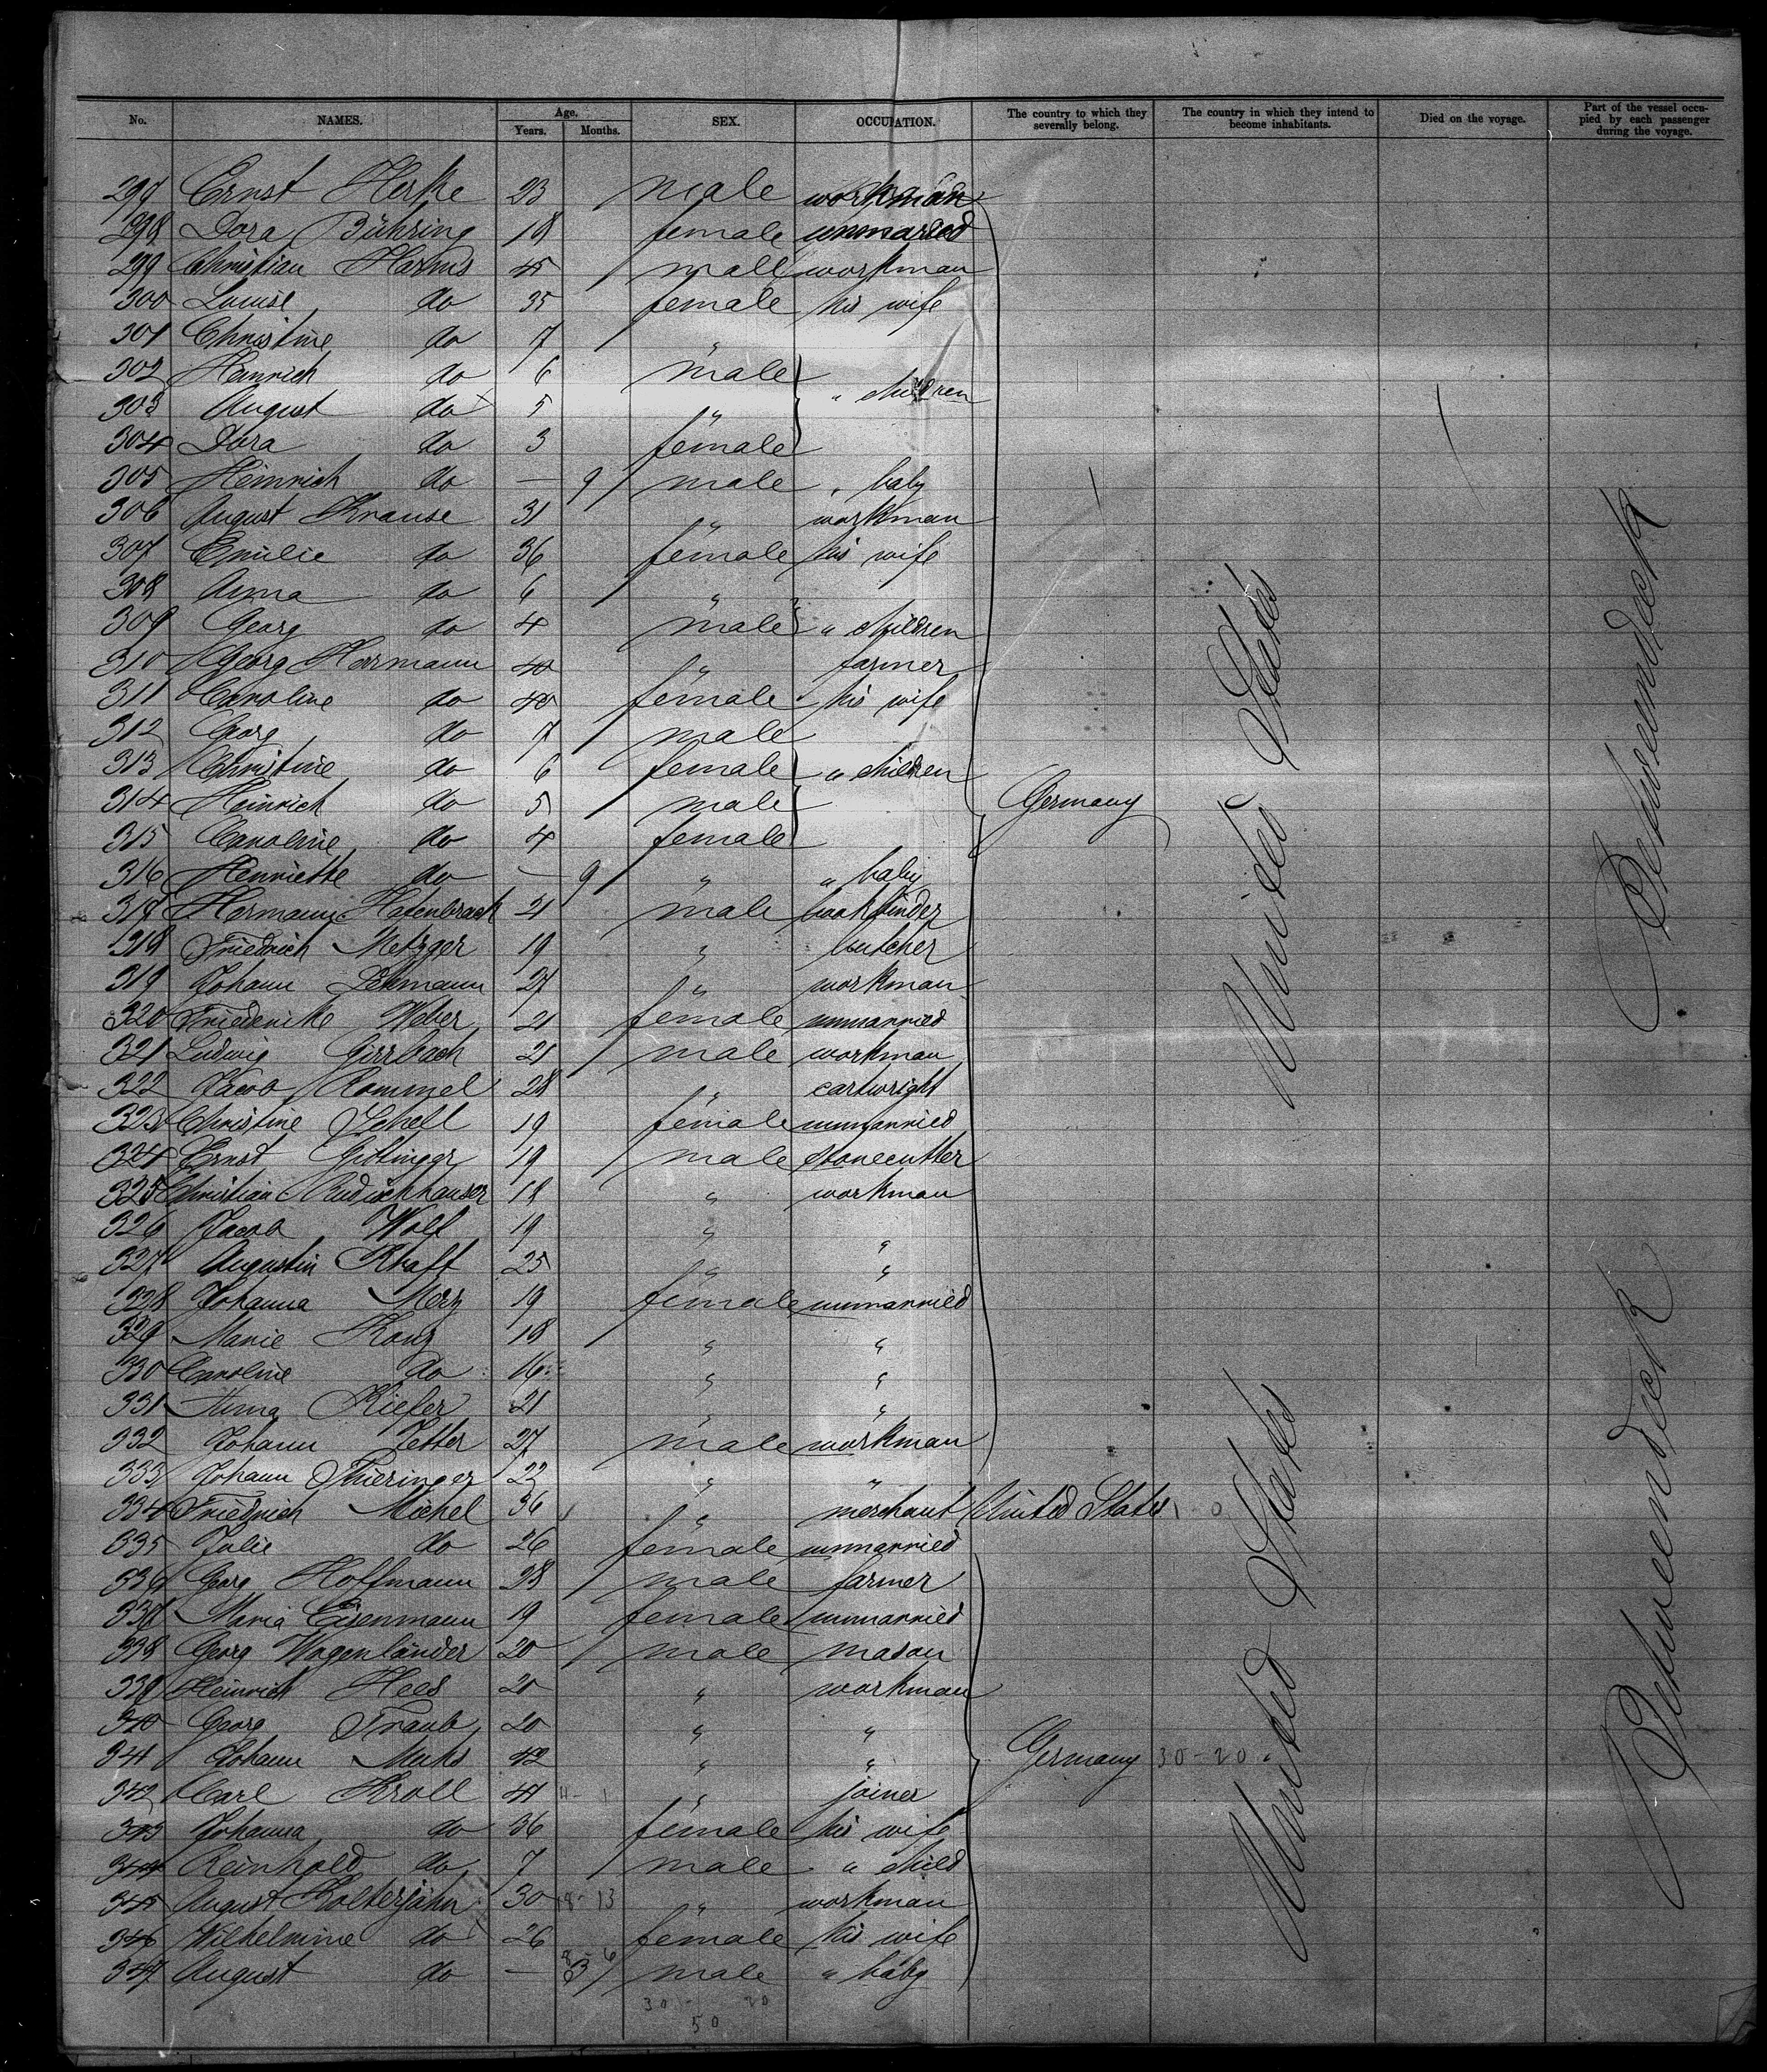 No. NAMES. Age. Years. Months. SEX. OCCUPATION. The country to which they severally belong. The country in which they intend to become inhabitants. Died on the voyage. Part of the vessel occupied by each passenger during the voyage.
297 Ernst Herke 23 male workman
298 Dora Bühring 18 female unmaried
299 Christian Harms 45 male workman
300 Louise do 35 female his wife
301 Christine do 7 "
302 Heinrich do 6 male
303 August do 5 " " children
304 Dora do 3 female
305 Heinrich do — 9 male " baby
306 August Krause 31 " workman
307 Emilie do 36 female his wife
308 Anna do 6 "
309 Georg do 4 male " children
310 Georg Hermann 40 " farmer
311 Caroline do 40 female his wife
312 Georg do 7 male
313 Christine do 6 female " children
314 Heinrich do 5 male Germany
315 Caroline do 4 female
316 Henriette do — 9 " " baby
317 Hermann Hafenbrack 21 male bookbinder
318 Friedrich Metzger 19 " butcher
319 Johann Lehmann 27 " workman
320 Friederike Weber 21 female unmarried
321 Ludwig Girrbach 21 male workman
322 Jacob Rommel 28 " cartwright
323 Christine Schell 19 female unmarried
324 Ernst Gittinger 19 male stonecutter
325 Christian 18 " workman
326 Jacob Wolf 19 " "
327 Augustin Rhaff 25 " "
328 Johanna Merz 19 female unmarried
329 Marie Konz 18 " "
330 Caroline do 16 " "
331 Anna Kiefer 21 " "
332 Johann Jetter 27 male workman
333 Johann Thieringer 22 " "
334 Friedrich Michel 36 " merchant United States 1 - 0
335 Julie do 26 female unmarried
336 Georg Hoffmann 28 male farmer
337 Maria Eisenmann 19 female unmarried
338 Georg Wagenländer 20 male mason
339 Heinrich Hees 20 " workman
340 Georg Traub 20 " "
341 Johann Muhs 42 " " Germany 30 - 20
342 Carl Kroll 41 11 - 1 " joiner
343 Johanna do 36 female his wife
344 Reinhold do 7 male " child
345 August Kolterjahn 30 18 - 13 " workman
346 Wilhelmine do 26 female his wife
347 August do — male " baby
30 - 20
50
United States
United States
Betweendeck
Betweendeck